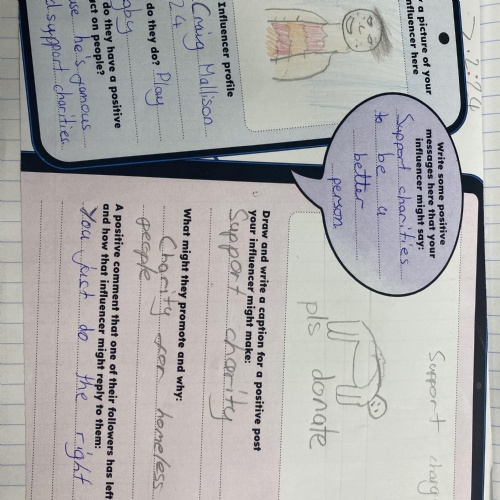 7.2.24
a picture of your
influencer here
Influencer profile
Craig Mallison
24
do they do? Play
do they have a positive
ct on people?
he's famous
support charities
Write some positive
messages here that your
influencer might say:
Support charities
to be a
better
person
Support
pls donate
Draw and write a caption for a positive post
your influencer might make:
Support charity
What might they promote and why:
Charity for homeless
people
A positive comment that one of their followers has left
and how that influencer might reply to them:
You just do the right